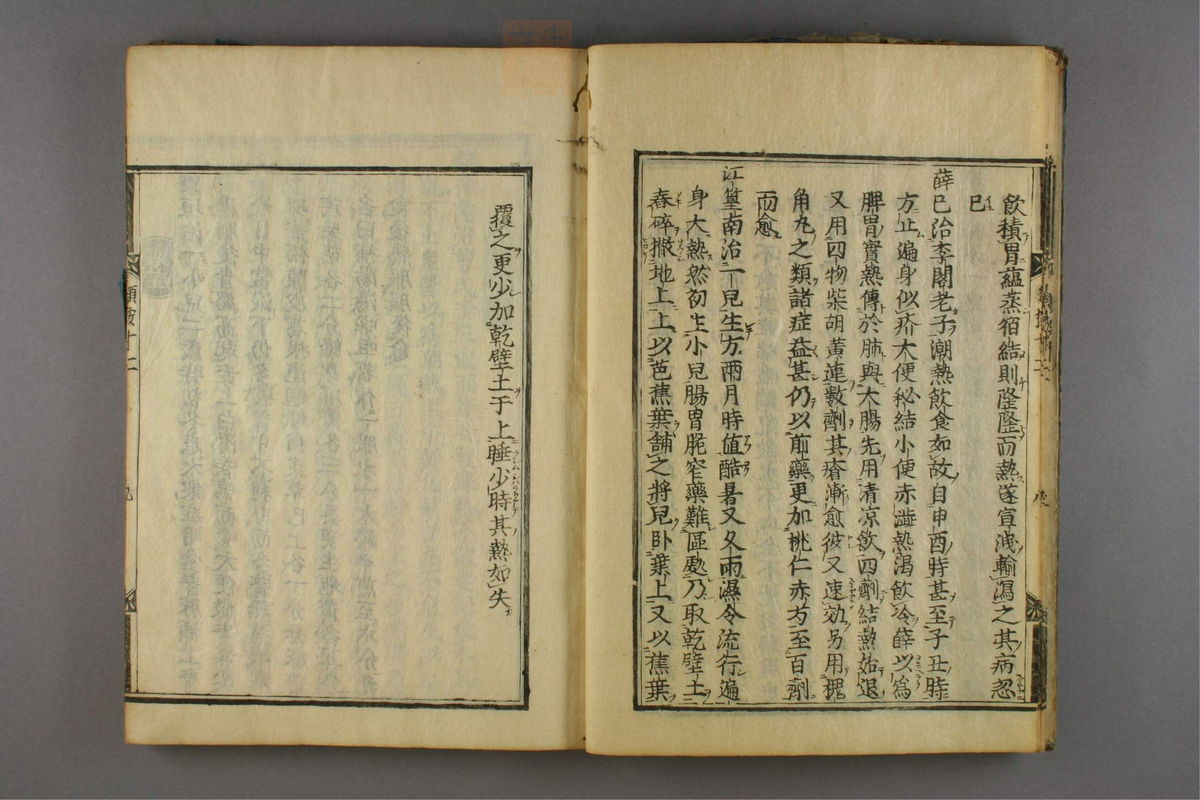 飲積胃蘊蒸宿結則隆隆而熱遂宣洩輸瀉之其病忽
已
薛已治李閣老子潮熱飲食如故自申酉時甚至子丑時
方止遍身似疥大便秘結小便赤澁熱渴飲冷薛以為
脾胃實熱傳於肺與大腸先用清凉飲四劑結熱始退
又用四物柴胡黄連數劑其瘡漸愈彼又速効另用槐
角丸之類諸症益甚仍以前藥更加桃仁赤芍至百劑
而愈
江篁南治一兒生方兩月時值酷暑又久雨濕令流行遍
身大熱然初生小兒腸胃脆窄藥難區處乃取乾壁土
舂碎撒地上上以芭蕉葉舗之將兒卧葉上又以蕉葉
覆之更少加乾壁土于上睡少時其熱如失
類按十二
九